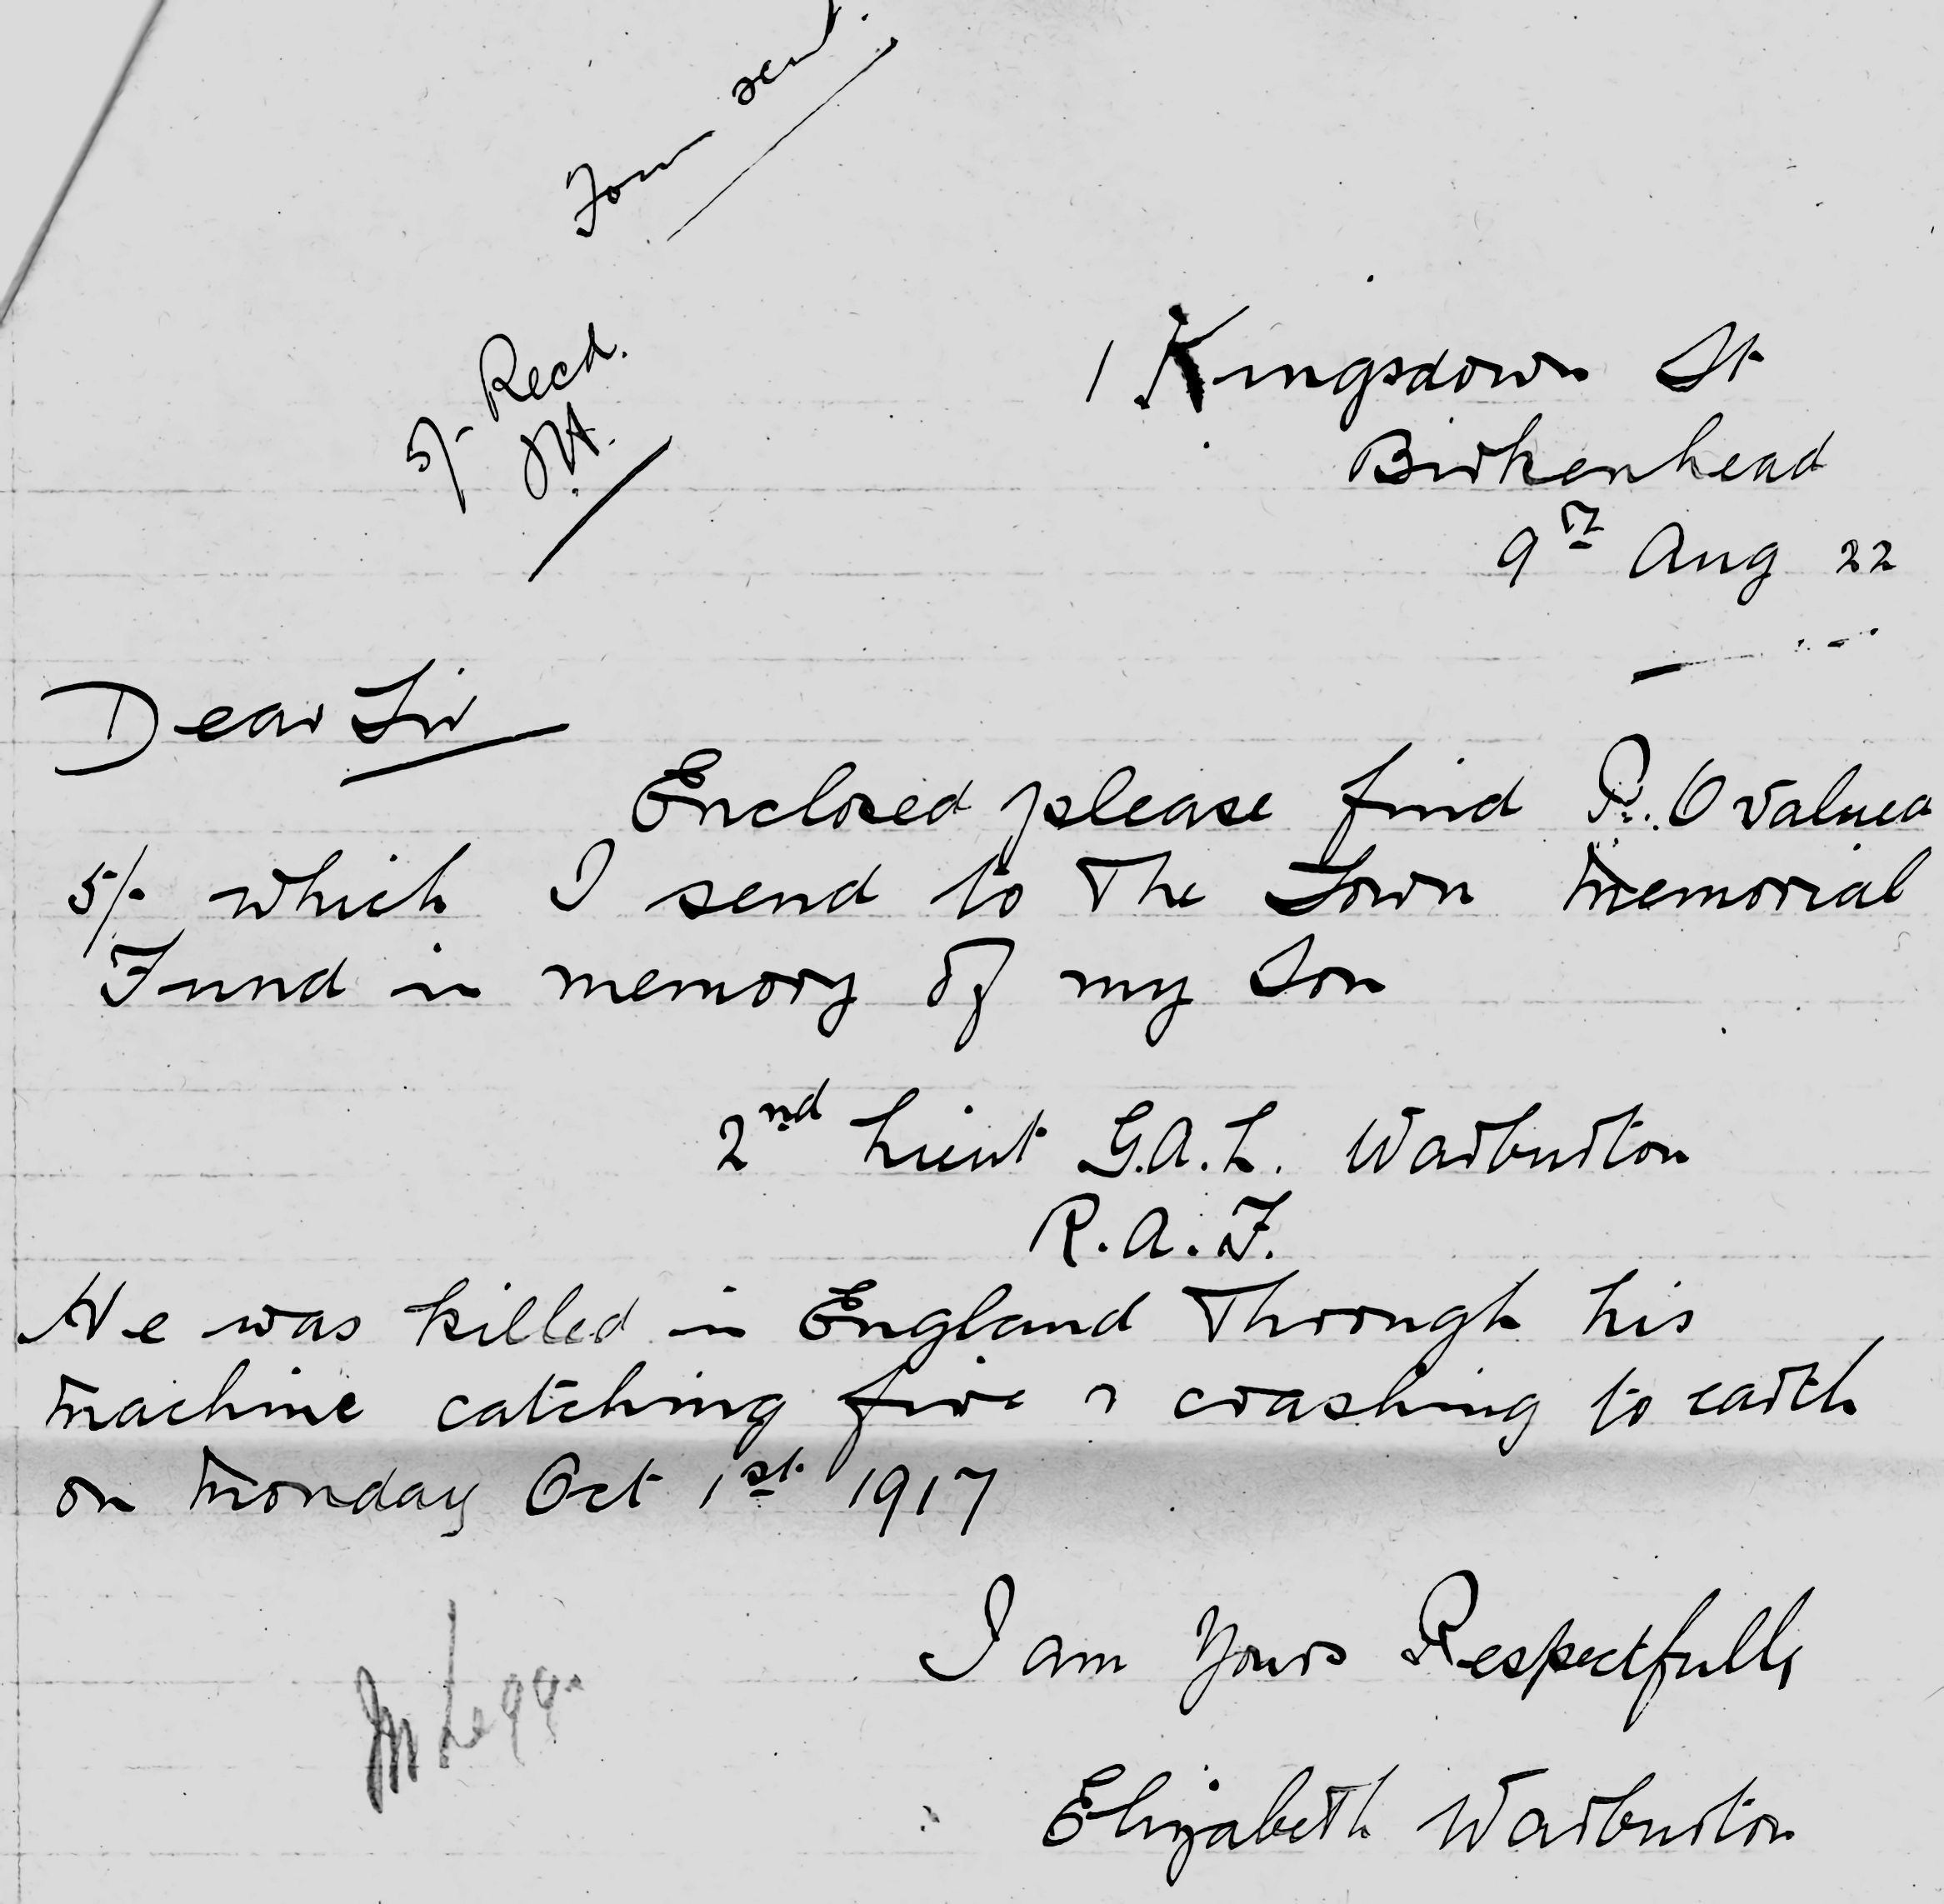 Form sent.
5/- Recd.
1 Kingsdown St
Birkenhead
9th Aug 22
Dear Sir
Enclosed please find P.O valued
5/- which I send to The Town Memorial
Fund in memory of my Son
2nd Lieut G.A.L. Warburton
R.A.F.
He was killed in England Through his
Machine catching fire & crashing to earth
on Monday Oct 1st 1917
I am Yours Respectfully
Mr Legg.
Elizabeth Warburton